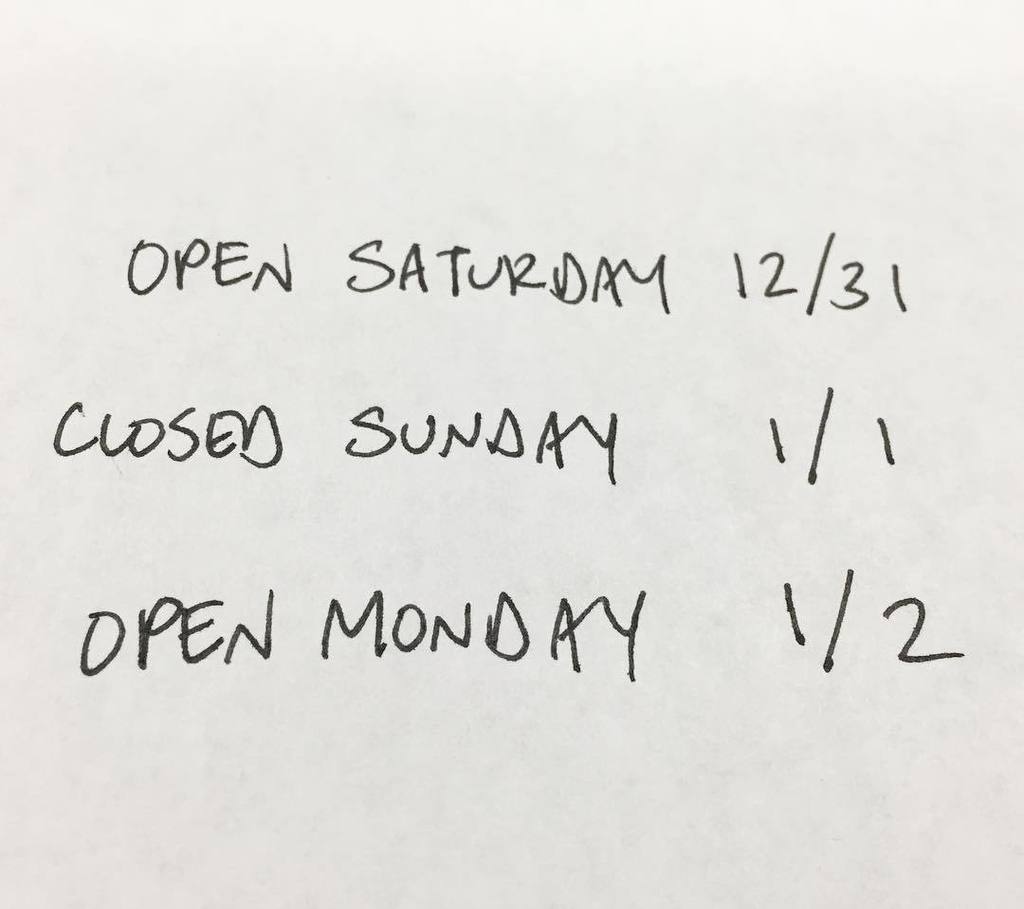 OPEN SATURDAY 12/31
CLOSED SUNDAY 1/1
OPEN MONDAY 1/2